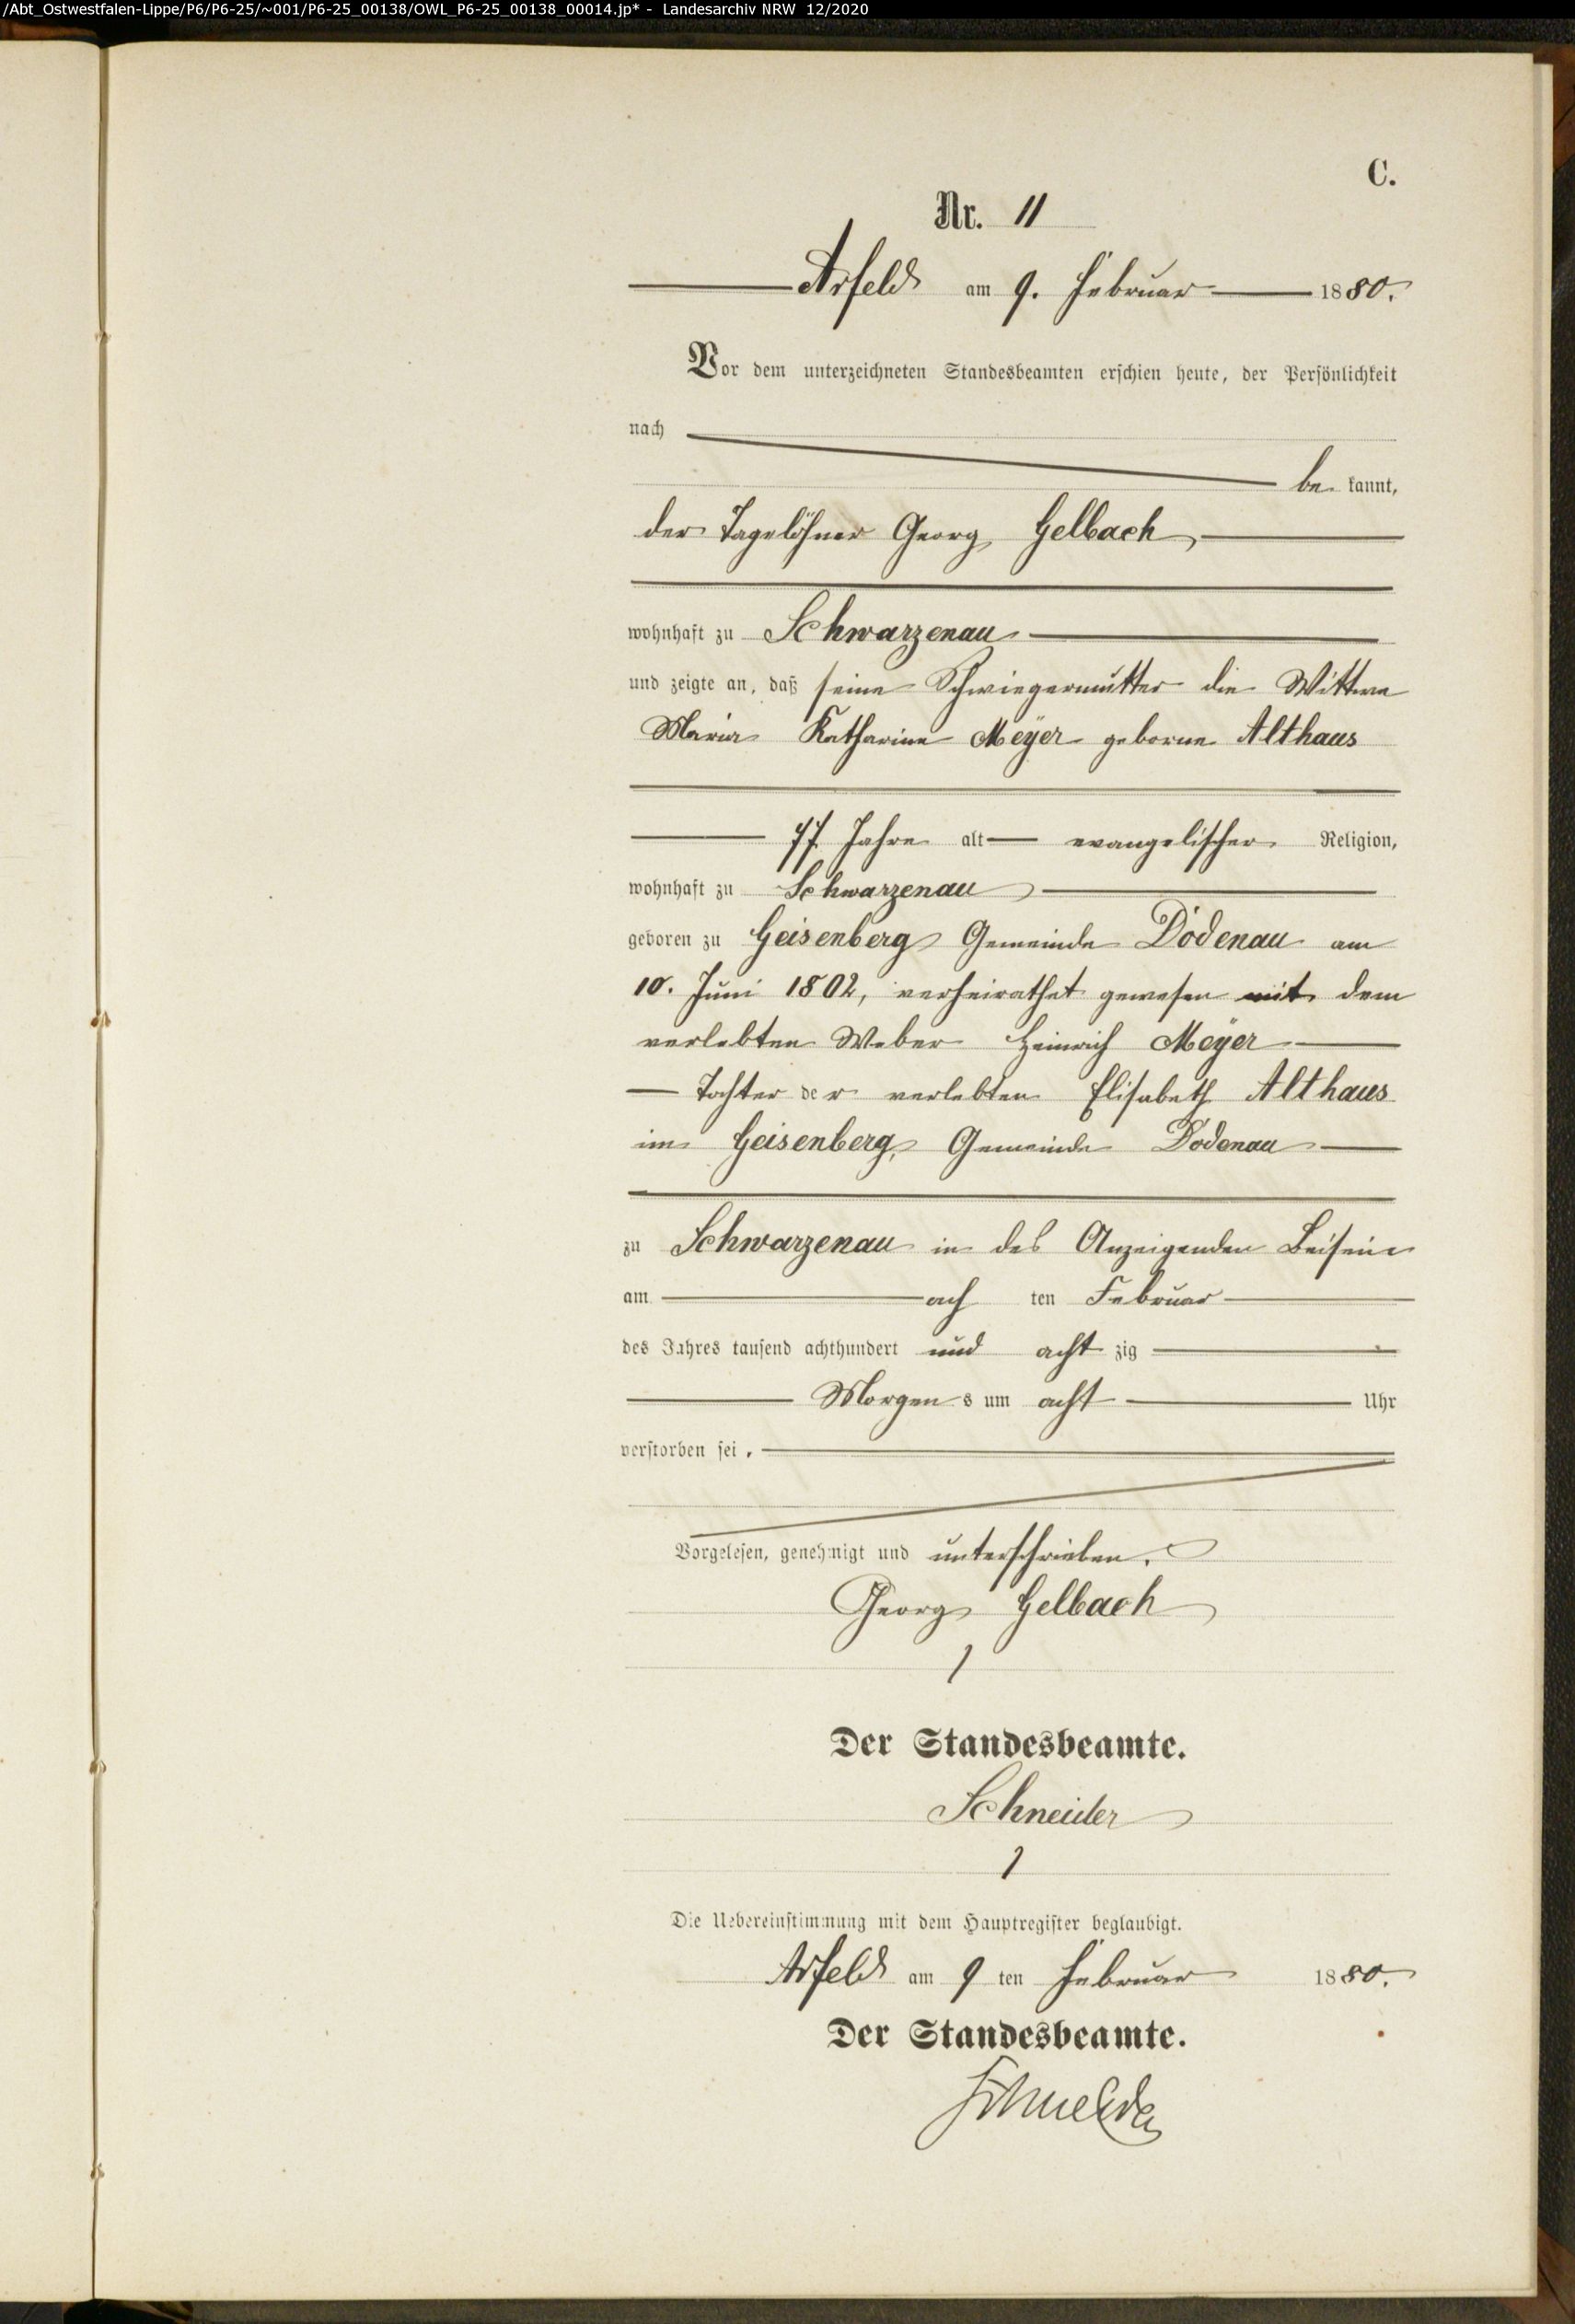 /Abt_Ostwestfalen-Lippe/P6/P6-25/~001/P6-25_00138/OWL_P6-25_00138_00014.jp* - Landesarchiv NRW 12/2020
C.
Nr. 11
Arfeld am 9. Februar 1880.
Vor dem unterzeichneten Standesbeamten erschien heute, der Persönlichkeit
nach
be kannt,
der Tagelöhner Georg Gelbach
wohnhaft zu Schwarzenau
und zeigte an, daß seine Schwiegermutter die Wittwe
Maria Katharine Meÿer geborne Althaus
77 Jahre alt evangelischer Religion,
wohnhaft zu Schwarzenau
geboren zu Geisenberg Gemeinde Dodenau am
10. Juni 1802, verheirathet gewesen mit dem
verlebten Weber Heinrich Meÿer
Tochter der verlebten Elisabeth Althaus
im Geisenberg, Gemeinde Dodenau
zu Schwarzenau in des Anzeigenden Beisein
am ach ten Februar
des Jahres tausend achthundert und acht zig
Morgen s um acht Uhr
verstorben sei.
Vorgelesen, genehmigt und unterschrieben.
Georg Gelbach
Der Standesbeamte.
Schneider
Die Uebereinstimmung mit dem Hauptregister beglaubigt.
Arfeld am 9 ten Februar 1880.
Der Standesbeamte.
Schneider